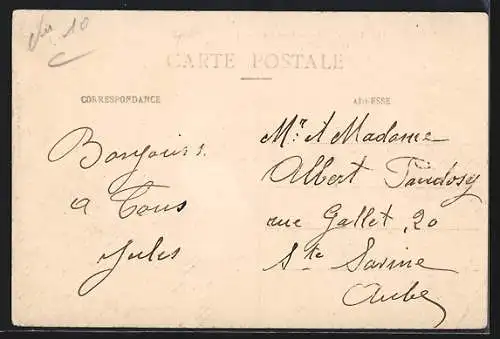 CARTE POSTALE
CORRESPONDANCE
ADRESSE
Bonjours
a Tous
Jules
Mr et Madame
Albert
rue Gallet, 20
Ste Savine
Aube